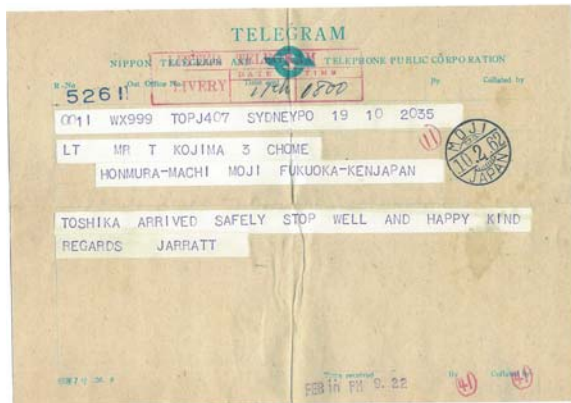 TELEGRAM
NIPPON TELEGRAPH AND TELEPHONE PUBLIC CORPORATION
DATE TIME
R-No Out Office No. By Collated by
5261 LIVERY 17th 1800
0011 WX999 TOPJ407 SYDNEYPO 19 10 2035
(11)
LT MR T KOJIMA 3 CHOME
HONMURA-MACHI MOJI FUKUOKA-KENJAPAN
MOJI
10.2.62
JAPAN
TOSHIKA ARRIVED SAFELY STOP WELL AND HAPPY KIND
REGARDS JARRATT
Time received By Collated
FEB 10 PM 9.22 (41) (41)